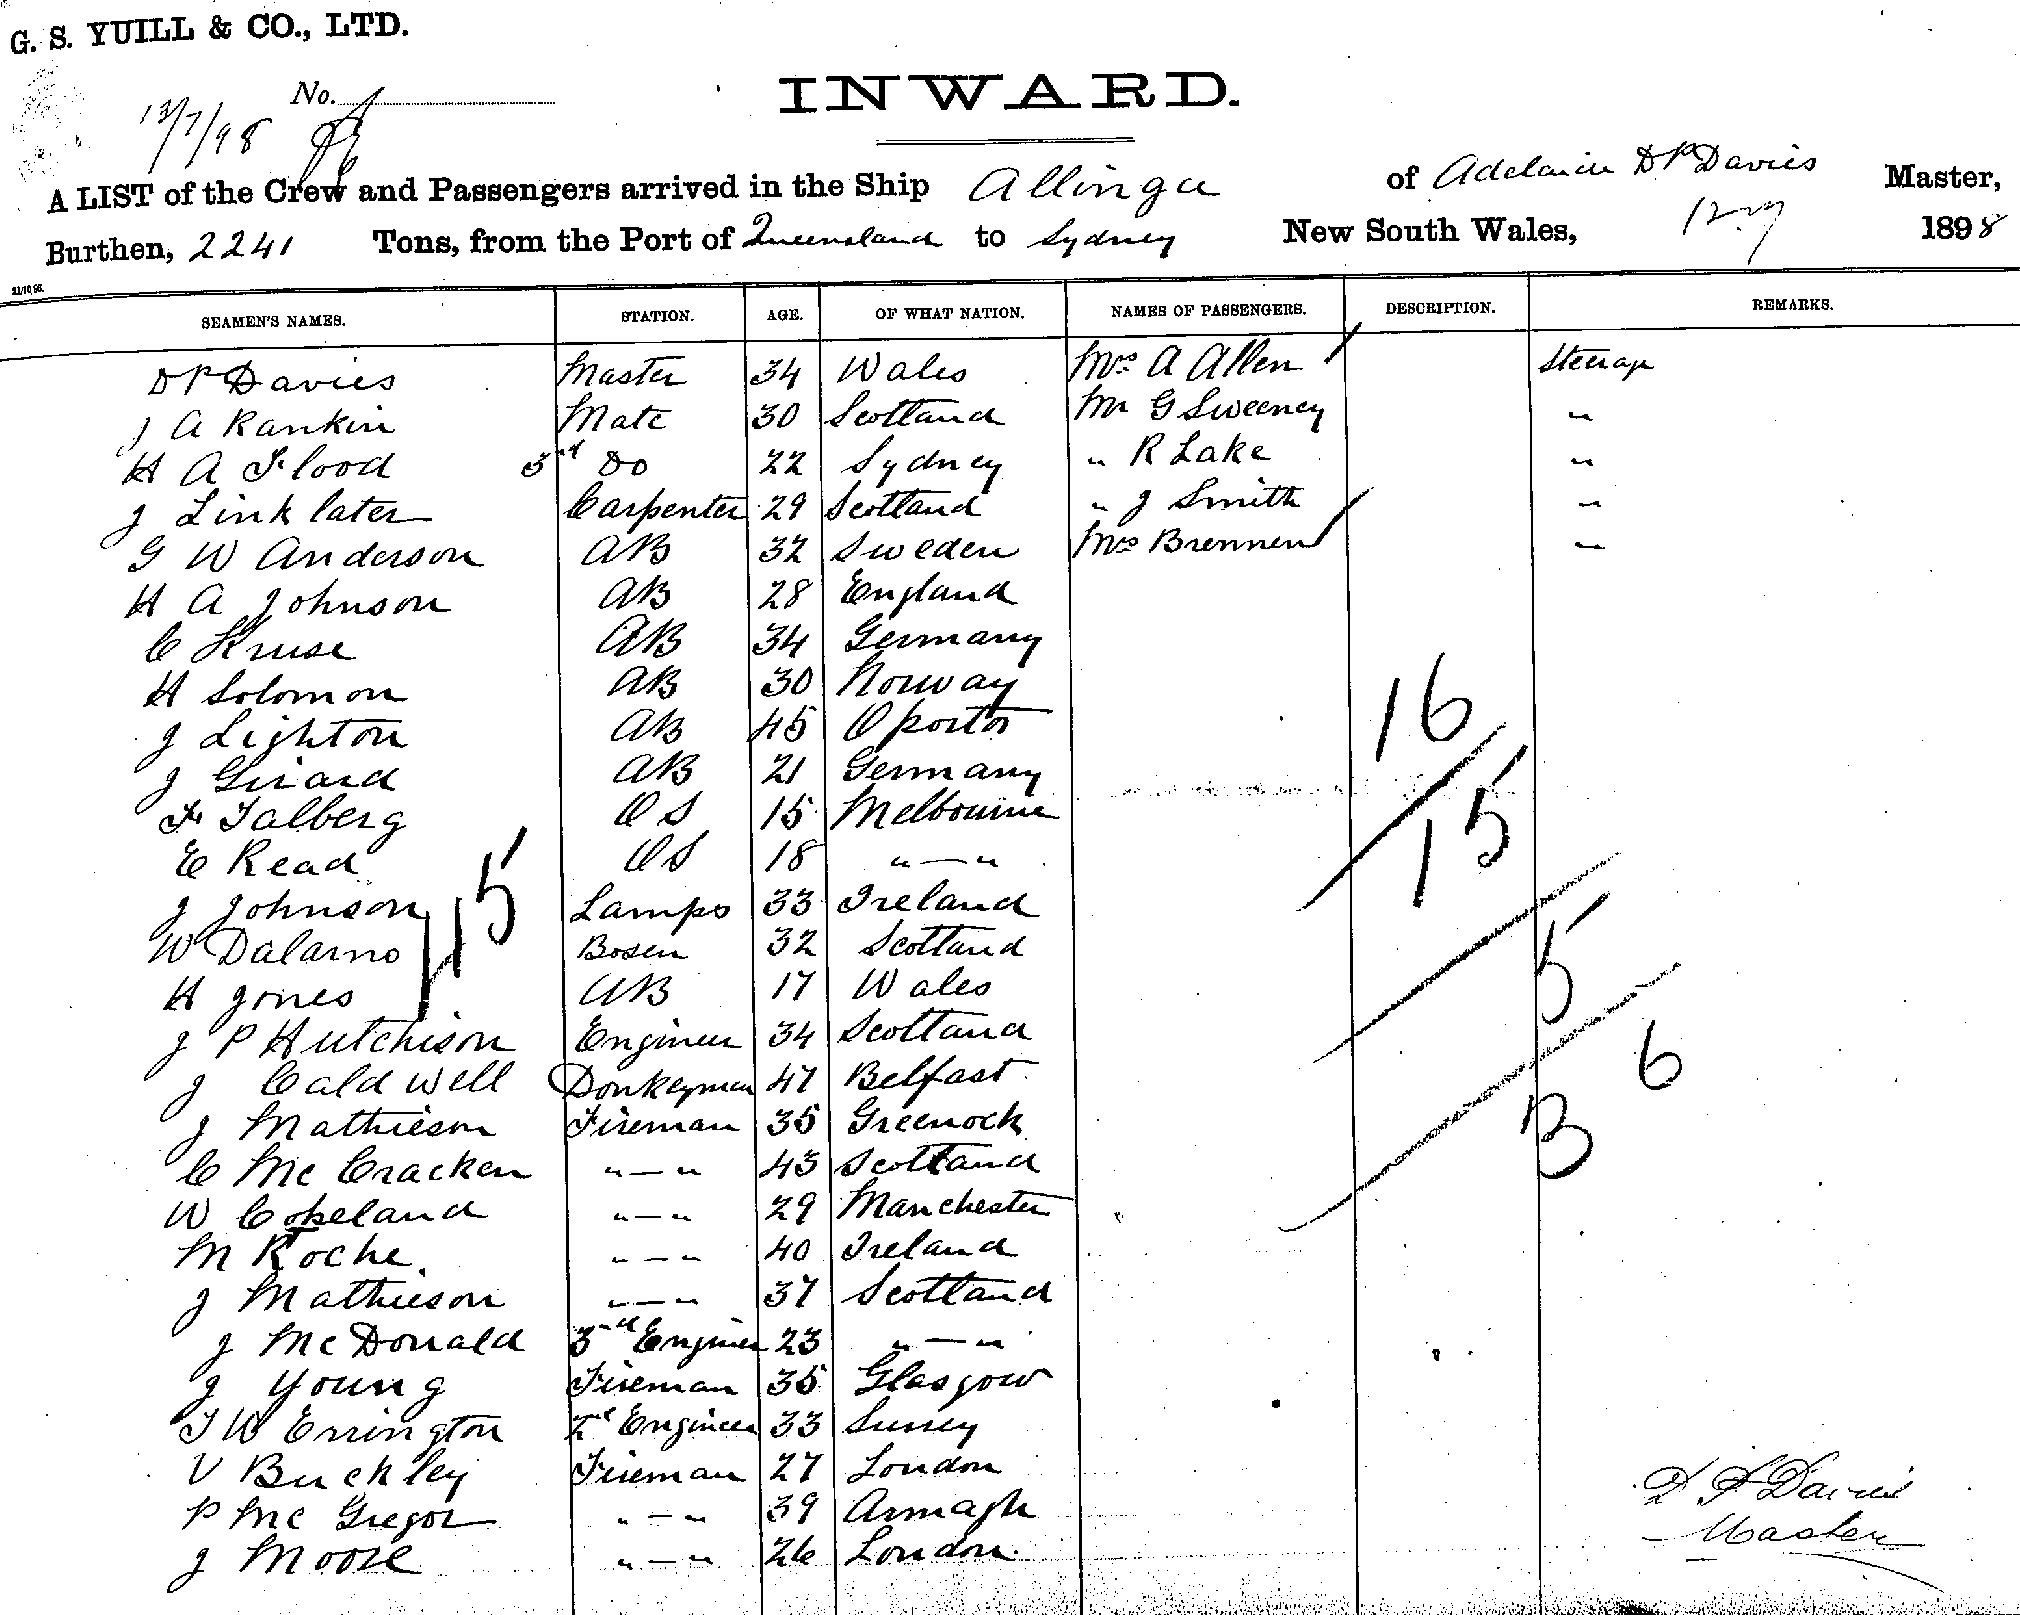 G. S. YUILL & CO., LTD.
No.
13/7/98
INWARD.
A LIST of the Crew and Passengers arrived in the Ship Allinga of Adelaide D P Davies Master,
Burthen, 2241 Tons, from the Port of Queensland to Sydney New South Wales, 1898
SEAMEN'S NAMES. STATION. AGE. OF WHAT NATION. NAMES OF PASSENGERS. DESCRIPTION. REMARKS.
D P Davies Master 34 Wales Mrs A Allen Steerage
J A Rankin Mate 30 Scotland Mr G Sweeney "
H A Flood 3rd Do 22 Sydney " R Lake "
J Linklater Carpenter 29 Scotland " J Smith "
G W Anderson AB 32 Sweden Mrs Brennen "
H A Johnson AB 28 England
C Kruse AB 34 Germany
H Solomon AB 30 Norway
J Lighton AB 45 Oporto
J Girard AB 21 Germany
F Talberg OS 15 Melbourne
E Read OS 18 " — "
J Johnson Lamps 33 Ireland
W Dalarno Bosen 32 Scotland
H Jones AB 17 Wales
J P Hutchison Engineer 34 Scotland
J Caldwell Donkeyman 47 Belfast
J Mathieson Fireman 35 Greenock
C McCracken " — " 43 Scotland
W Copeland " — " 29 Manchester
M Roche " — " 40 Ireland
J Mathieson " — " 37 Scotland
J McDonald 3rd Engineer 23 " — "
J Young Fireman 35 Glasgow
T W Errington 2d Engineer 33 Surrey
V Buckley Fireman 27 London
P McGregor " — " 39 Armagh
J Moore " — " 26 London
15
16
15
5
6
B
D P Davies
Master